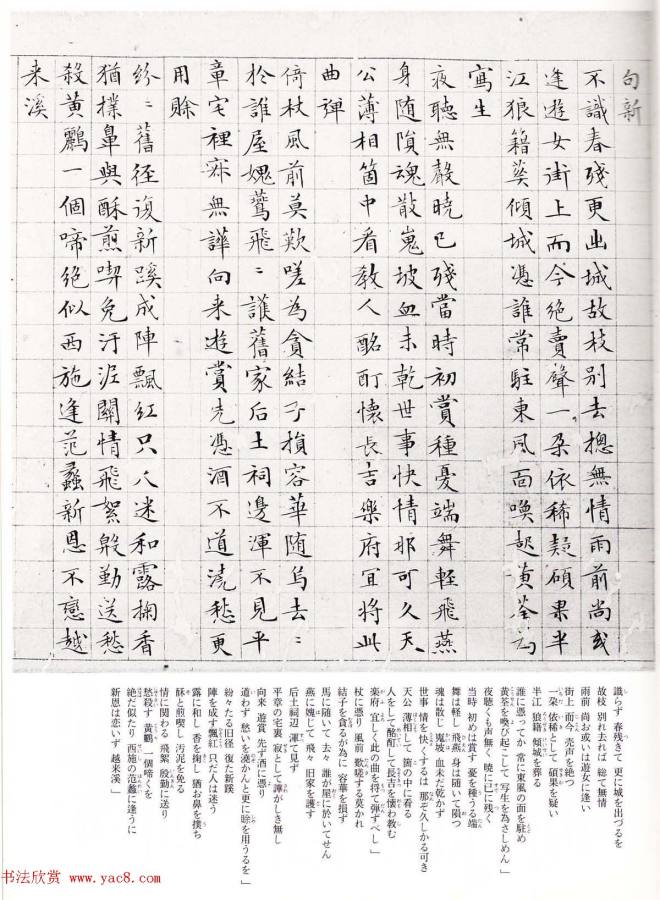 句新
不識春殘更出城故枝別去摠無情雨前尚或
逢遊女街上而今絶賣聲一朵依稀疑碩果半
江狼籍葬傾城憑誰常駐東風面喚起黃筌為
寫生
夜聽無聲曉已殘當時初賞種憂端舞輕飛燕
身随隕魂散嵬坡血未乾世事快情那可久天
公薄相箇中看教人酩酊懷長吉樂府宜將此
曲彈
倚杖風前莫歎嗟為貪結子損容華随馬去〻
於誰屋媿鷰飛〻護舊家后土祠邊渾不見平
章宅裡寂無譁向来遊賞先憑酒不道澆愁更
用賒
紛〻舊徑復新蹊成陣飄紅只人迷和露掬香
猶撲鼻與酥煎喫免汙泥關情飛絮慇勤送愁
殺黃鸝一個啼絶似西施逢范蠡新恩不戀越
来溪
識らず 春残きて 更に城を出づるを
故枝 別れ去れば 総て無情
雨前 尚お或いは遊女に逢い
街上 而今 売声を絶つ
一朶 依稀として 碩果を疑い
半江 狼籍 傾城を葬る
誰に憑ってか 常に東風の面を駐め
黄筌を喚び起こして 写生を為さしめん」
夜聴くも声無く 暁に已に残く
当時 初めは賞す 憂を種うる端
舞は軽し 飛燕 身は随いて隕つ
魂は散じ 嵬坡 血未だ乾かず
世事 情を快くするは 那ぞ久しかる可き
天公 薄相して 箇の中に看る
人をして 酩酊して長吉を懐わ教む
楽府 宜しく此の曲を将て弾ずべし」
杖に憑り 風前 歎嗟する莫かれ
結子を貪るが為に 容華を損ず
馬に随いて 去々 誰が屋に於いてせん
燕に媿じて 飛々 旧家を護す
后土祠辺 渾て見ず
平章の宅裏 寂として譁がしき無し
向来 遊賞 先ず酒に憑り
道わず 愁いを澆かんと更に賒を用うるを」
紛々たる旧径 復た新蹊
陣を成す飄紅 只だ人は迷う
露に和し 香を掬し 猶お鼻を撲ち
酥と煎喫し 汚泥を免る
情に関わる 飛絮 殷勤に送り
愁殺す 黄鸝 一個啼くを
絶だ似たり 西施の范蠡に逢うに
新恩は恋いず 越来渓」
书法欣赏 www.yac8.com